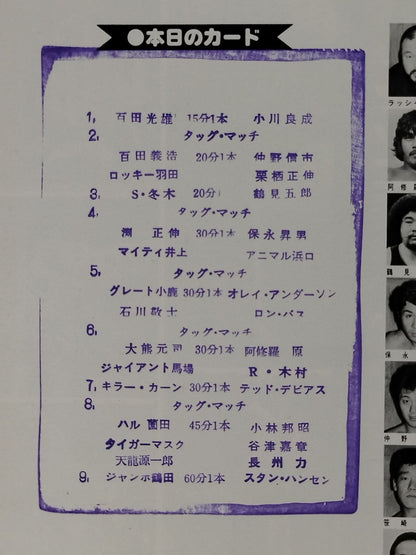 ●本日のカード
1, 百田光雄 15分1本 小川良成
2. タッグ・マッチ
百田義浩 20分1本 仲野信市
ロッキー羽田 栗栖正伸
3, S・冬木 20分1 鶴見五郎
4, タッグ・マッチ
渕 正伸 30分1本 保永昇男
マイティ井上 アニマル浜口
5. タッグ・マッチ
グレート小鹿 30分1本 オレイ・アンダーソン
石川敬士 ロン・バス
6. タッグ・マッチ
大熊元司 30分1本 阿修羅 原
ジャイアント馬場 R・木村
7, キラー・カーン 30分1本 テッド・デビアス
8. タッグ・マッチ
ハル薗田 45分1本 小林邦昭
タイガーマスク 谷津嘉章
天龍源一郎 長州力
9. ジャンボ鶴田 60分1本 スタン・ハンセン
ラッシ
阿修
鶴見
保永
仲野
笹崎